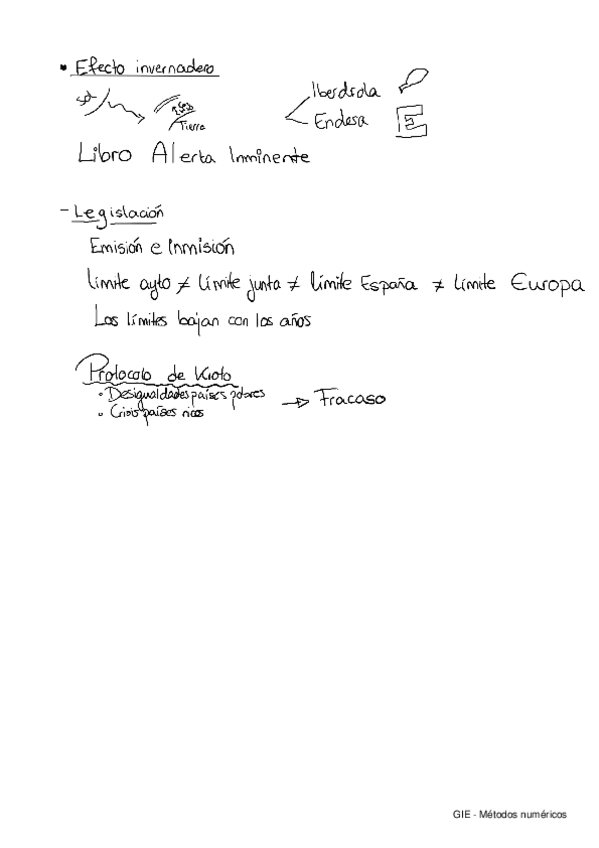 • Efecto invernadero
sol
Tierra
Iberdrola
Endesa E
Libro Alerta Inminente
- Legislación
Emisión e Inmisión
límite ayto ≠ límite junta ≠ límite España ≠ límite Europa
Los límites bajan con los años
Protocolo de Kioto
• Desigualdades países pobres
• Crisis países ricos
→ Fracaso
GIE - Métodos numéricos